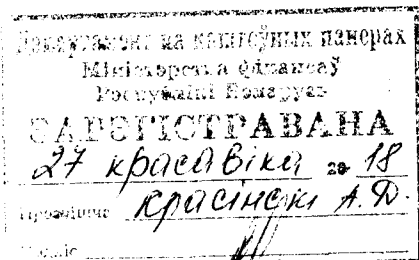 Дэпартамент па каштоўных паперах
Міністэрства фінансаў
Рэспублікі Беларусь
ЗАРЭГІСТРАВАНА
27 красавіка 20 18
Прозвішча Красінскі А. Ф.
Подпіс